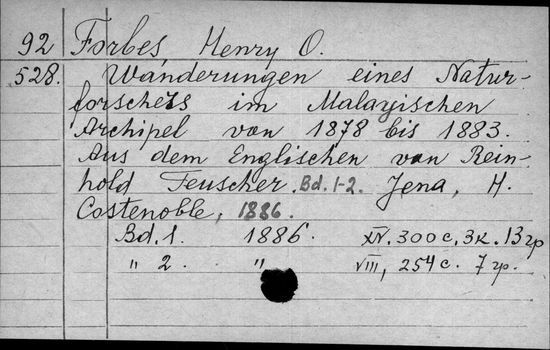 92 Forbes Henry O.
528. Wanderungen eines Natur-
forschers im Malayischen
Archipel von 1878 bis 1883.
Aus dem Englischen von Rein-
hold Teuscher. Bd. 1-2. Jena, H.
Costenoble, 1886.
Bd. 1. 1886. XV, 300 с., 3к. 13 гр
" 2. " VIII, 254 с. 7 гр.